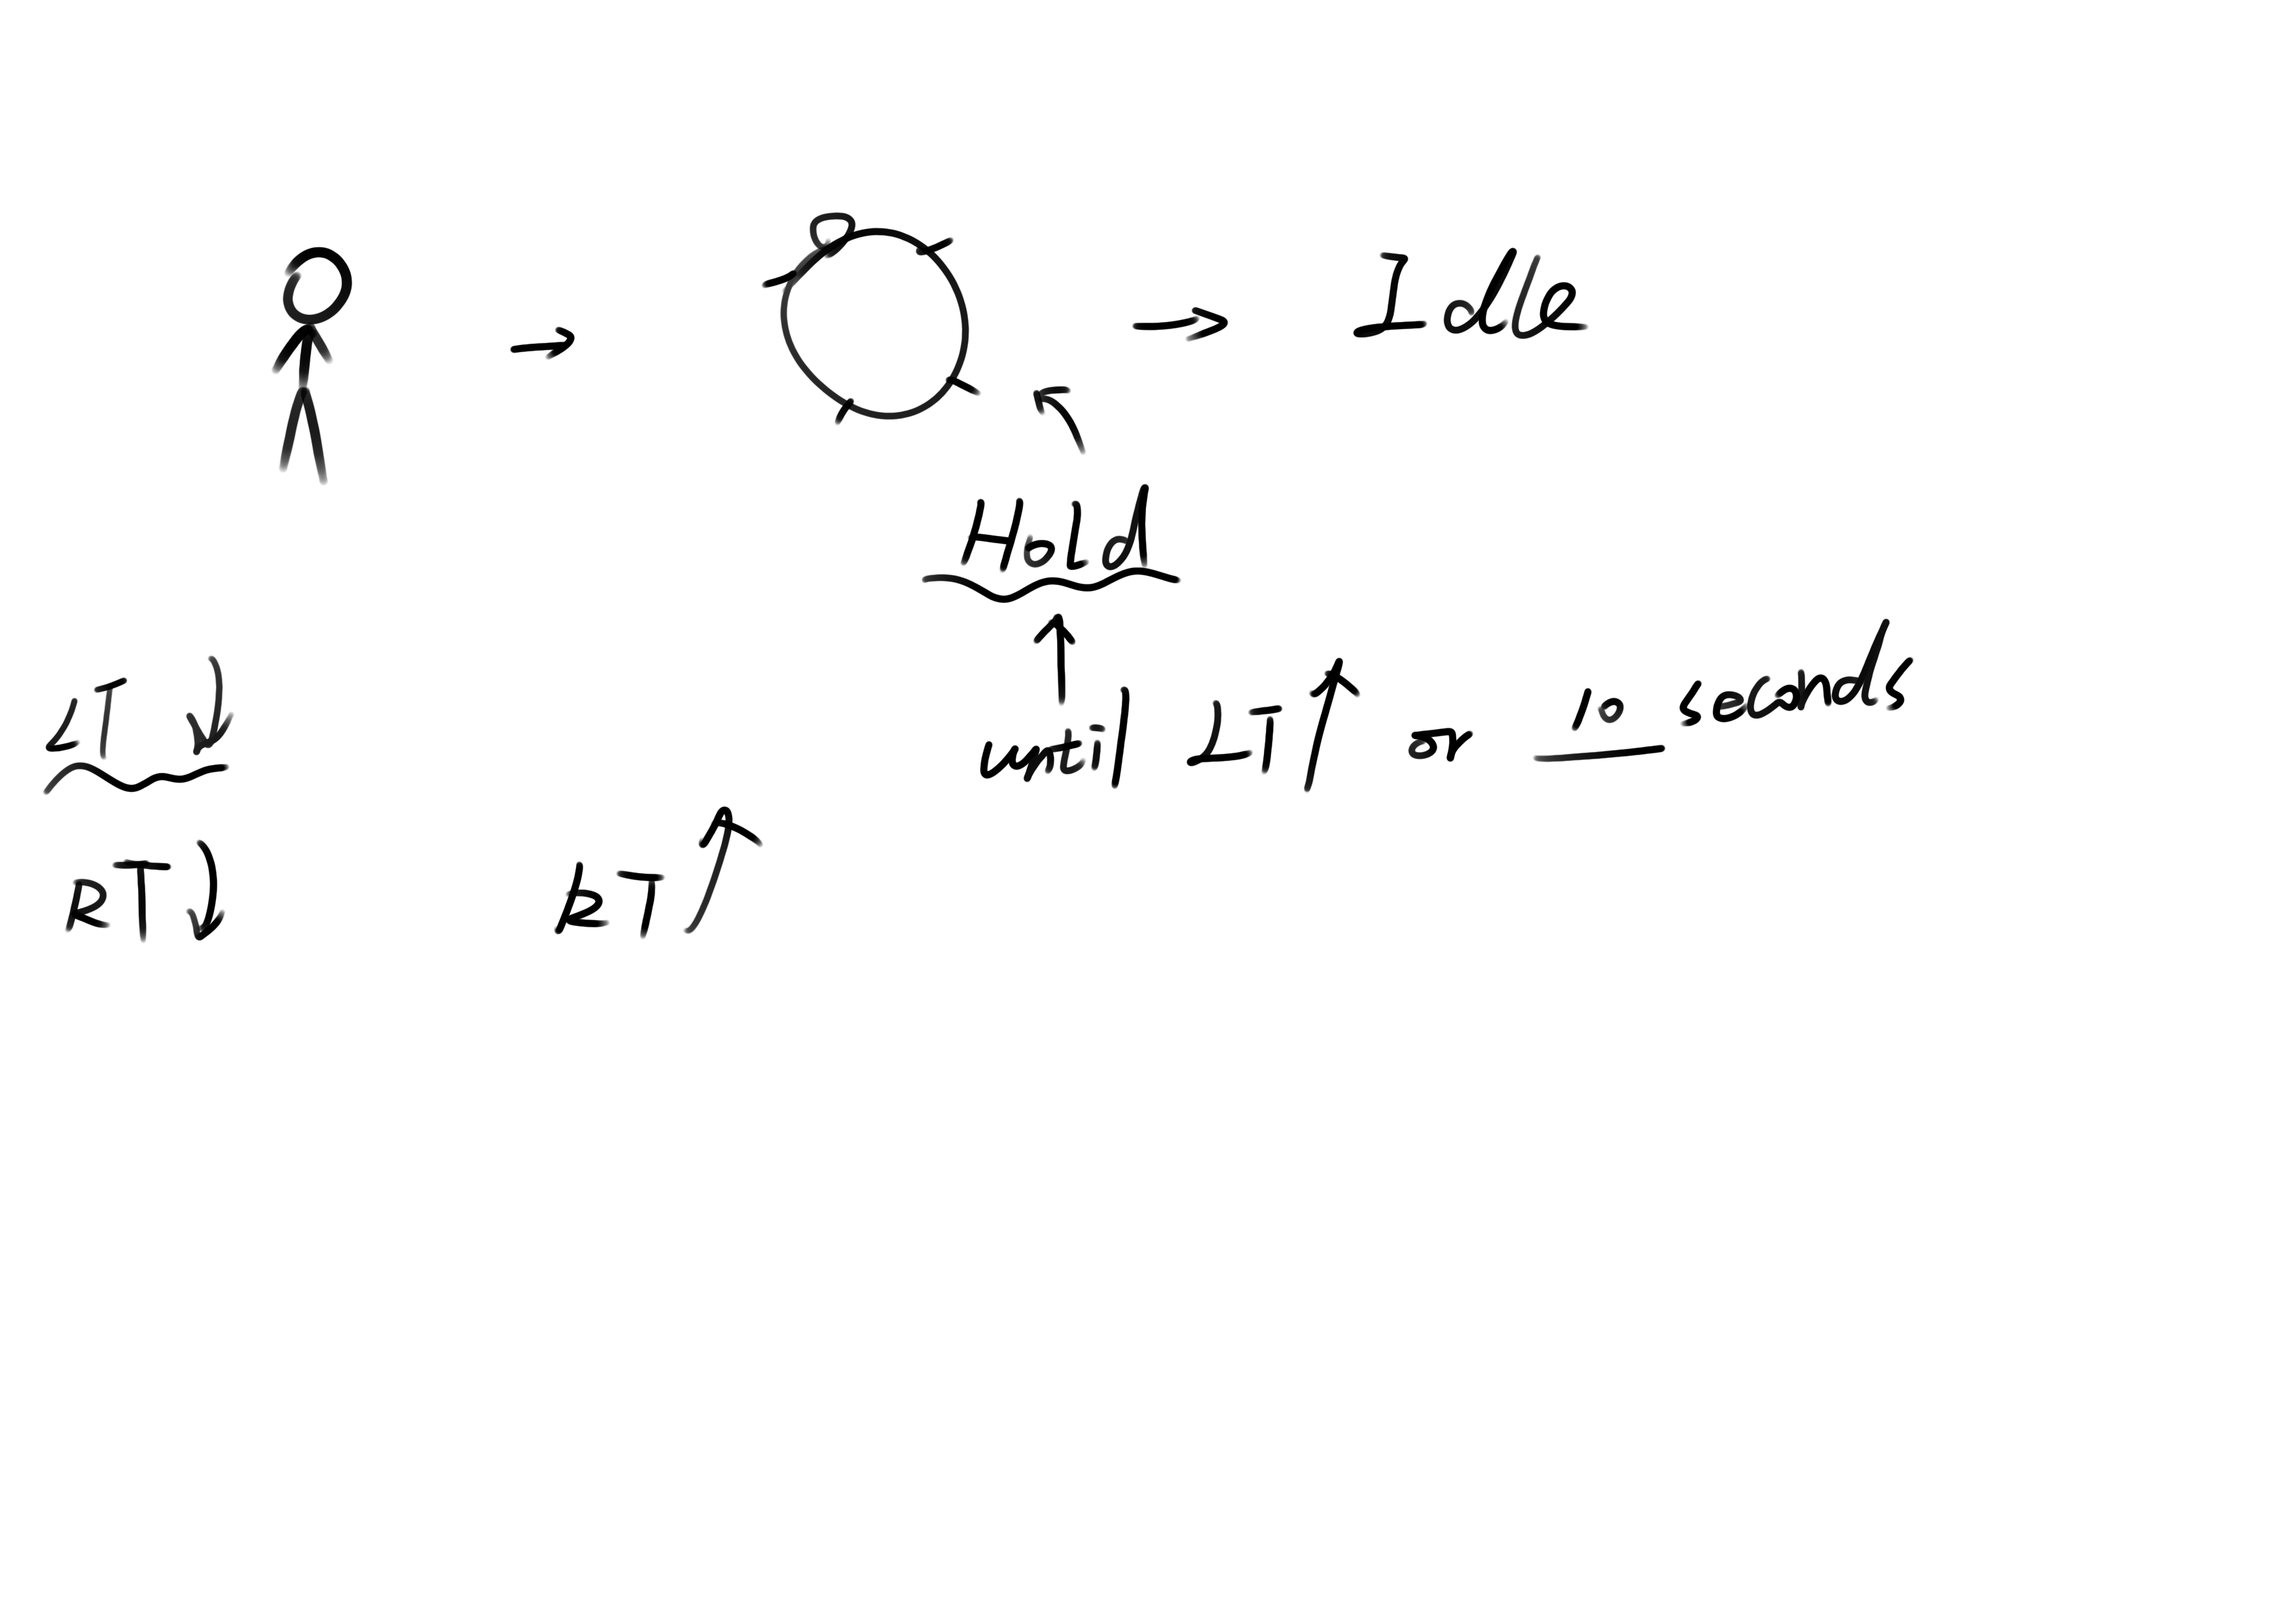 Idle
Hold
until LT↑ or 10 seconds
LT↓
RT↓
RT↑